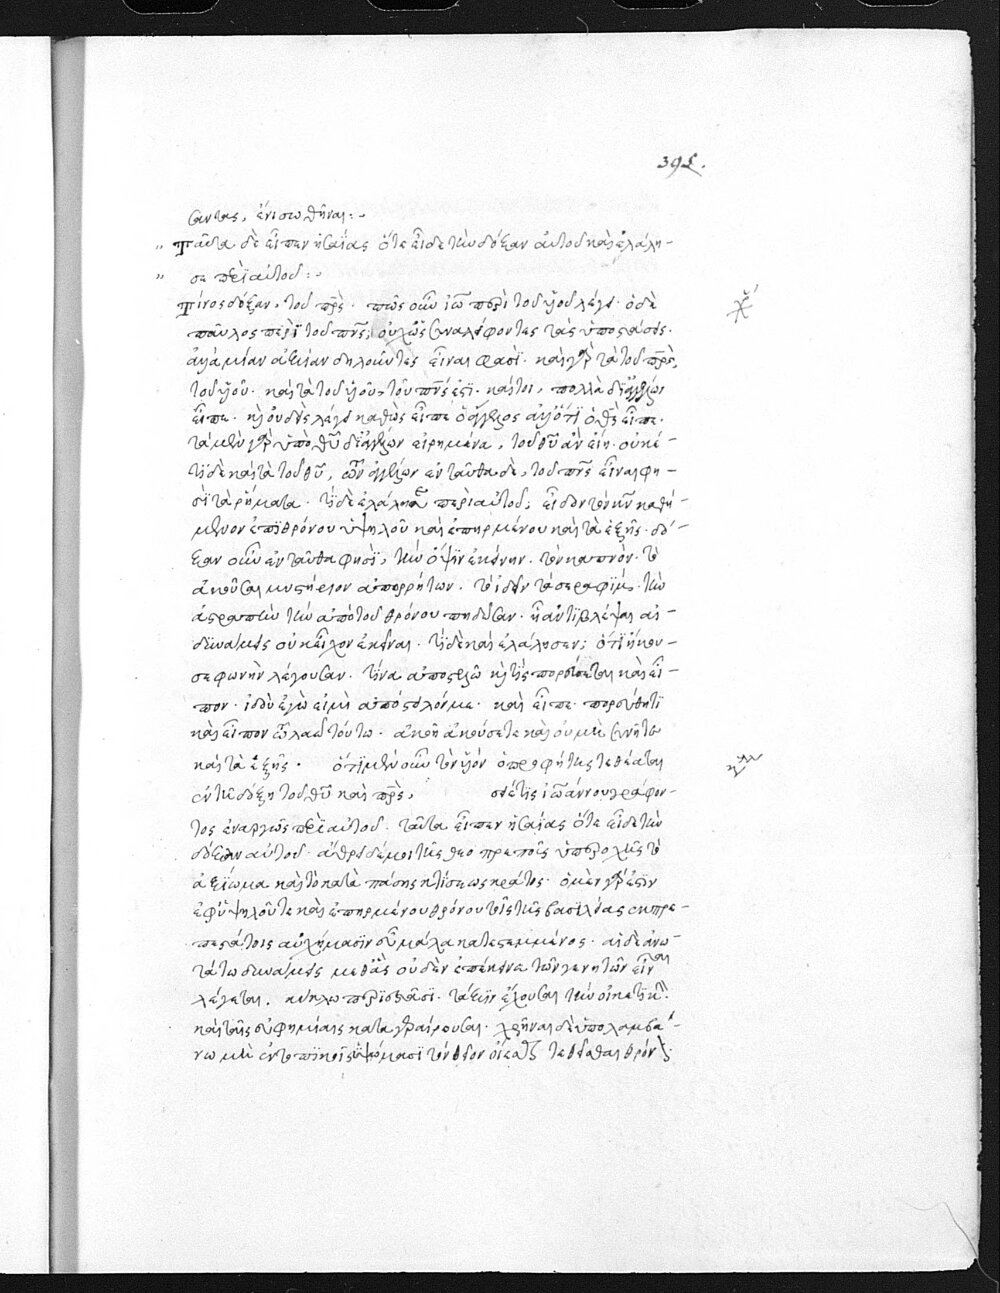 395.
σαντας, ἐνισωθῆναι:
Ταῦτα δὲ εἶπεν ἡσαΐας ὅτε εἶδε τὴν δόξαν αὐτοῦ καὶ ἐλάλη-
σε περὶ αὐτοῦ:
Τίνος δόξαν, τοῦ πρς· πῶς οὖν ἰω περὶ τοῦ υἱοῦ λέγει· ὁ δὲ
παῦλος περὶ τοῦ πνς; οὐχ ὡς συναλείφοντες τὰς ὑποστάσεις·
ἀλλὰ μίαν ἀξίαν δηλοῦντες εἶναι φασί· καὶ γὰρ τὰ τοῦ πρς,
τοῦ υἱοῦ· καὶ τὰ τοῦ υἱοῦ, τοῦ πνς ἐστι· καίτοι, πολλὰ δι' ἀγγέλων
εἶπε· κ οὐδεὶς λέγει καθὼς εἶπε ὁ ἄγγελος ἀλλ' ὅτι ὁ θς εἶπε·
τὰ μὲν γὰρ ὑπὸ θυ δι' ἀγγέλων εἰρημένα, τοῦ θυ ἂν εἴη· οὐκέ-
τι δὲ καὶ τὰ τοῦ θυ, τῶν ἀγγέλων ἐνταῦθα δὲ, τοῦ πνς εἶναι φη-
σὶ τὰ ῥήματα· τί δὲ ἐλάλησε περὶ αὐτοῦ; εἶδον τὸν κν καθή-
μενον ἐπὶ θρόνου ὑψηλοῦ καὶ ἐπηρμένου καὶ τὰ ἑξῆς· δό-
ξαν οὖν ἐνταῦθα φησὶ, τὴν ὄψιν ἐκείνην· τὸν καπνὸν· τὸ
ἀκοῦσαι μυστήριον ἀπορρήτων· τὸ ἰδεῖν τὰ σεραφίμ· τὴν
ἀστραπὴν τὴν ἀπὸ τοῦ θρόνου πηδῶσαν· ᾗ ἀντιβλέψαι αἱ
δυνάμεις οὐκ εἶχον ἐκεῖναι· τί δὲ καὶ ἐλάλησεν; ὅτι ἤκου-
σε φωνὴν λέγουσαν· τίνα ἀποστελῶ κ τίς πορεύσεται καὶ εἶ-
πον· ἰδοὺ ἐγὼ εἰμὶ ἀπόστειλόν με· καὶ εἶπε· πορεύθητι
καὶ εἶπον τῶ λαῶ τούτω· ἀκοῆ ἀκούσετε καὶ οὐ μὴ συνῆτε
καὶ τὰ ἑξῆς· ὅτι μὲν οὖν τὸν υἱὸν ὁ προφήτης τεθέαται
ἐν τῆ δόξη τοῦ θυ καὶ πρς, ἰωάννου γράφον-
τος ἐναργῶς περὶ αὐτοῦ· ταῦτα εἶπεν ἡσαΐας ὅτε εἶδε τὴν
δόξαν αὐτοῦ· ἄθρει δέ μοι τῆς θεοπρεποῦς ὑπεροχῆς τὸ
ἀξίωμα καὶ τὸ κατὰ πάσης κτίσεως κράτος· ὁ μὲν γάρ ἐστιν
ἐφ' ὑψηλοῦ τε καὶ ἐπηρμένου θρόνου τοῖς τῆς βασιλείας ἐκπρε-
πεστάτοις αὐχήμασιν εὖ μάλα κατεστεμμένος· αἱ δὲ ἀνω-
τάτω δυνάμεις μεθ' ἃς οὐδὲν ἐπέκεινα τῶν γενητῶν εἶναι
λέγεται, κύκλω περιεστᾶσι· τάξιν ἔχουσαι τὴν οἰκετικήν·
καὶ ταῖς εὐφημίαις καταγεραίρουσαι· χρῆναι δὲ ὑπολαμβά-
νω μὴ ἐν τοπικοῖς ὑψώμασι τὸν θεῖον οἴεσθαι τεθεῖσθαι θρόνον·